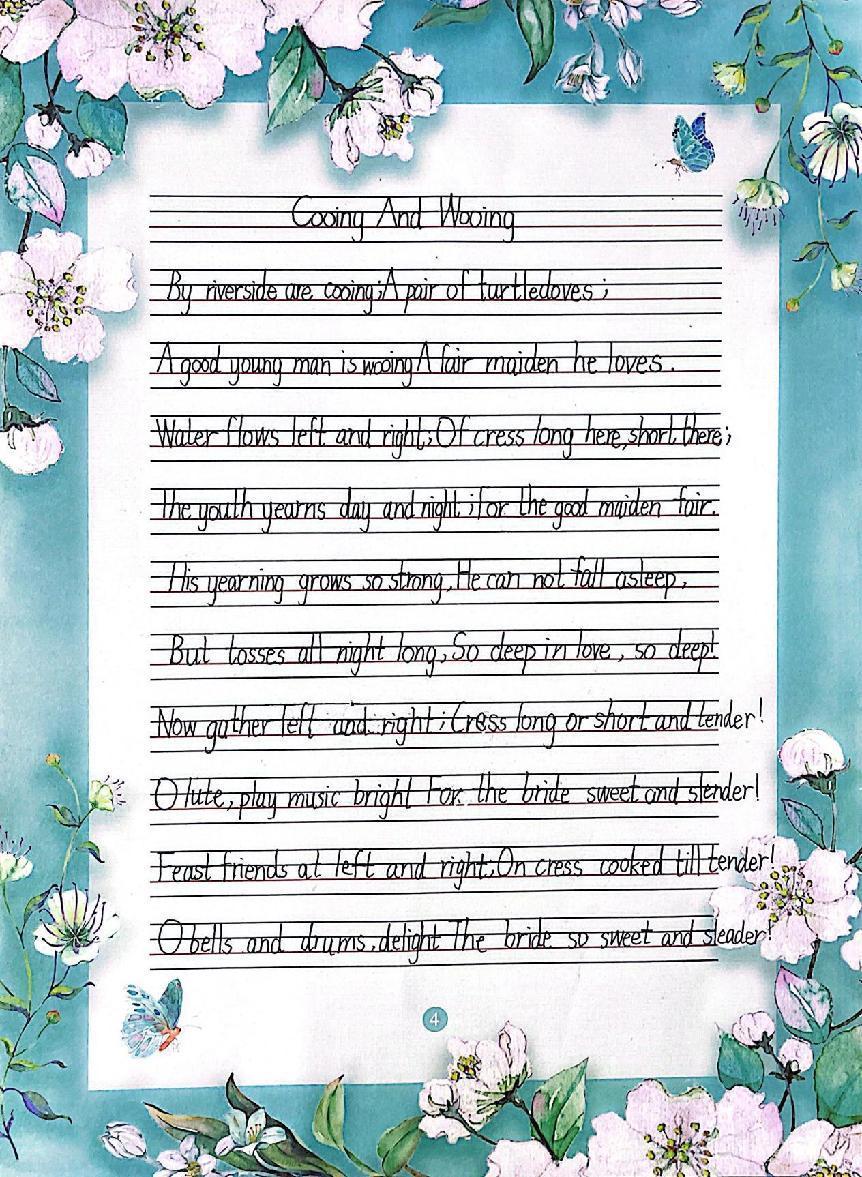 Cooing And Wooing
By riverside are cooing;A pair of turtledoves;
A good young man is wooing A fair maiden he loves.
Water flows left and right;Of cress long here,short there;
The youth yearns day and night;for the good maiden fair.
His yearning grows so strong,He can not fall asleep,
But tosses all night long,So deep in love, so deep!
Now gather left and right;Cress long or short and tender!
O lute,play music bright For the bride sweet and slender!
Feast friends at left and right;On cress cooked till tender!
O bells and drums,delight The bride so sweet and sleader!
4